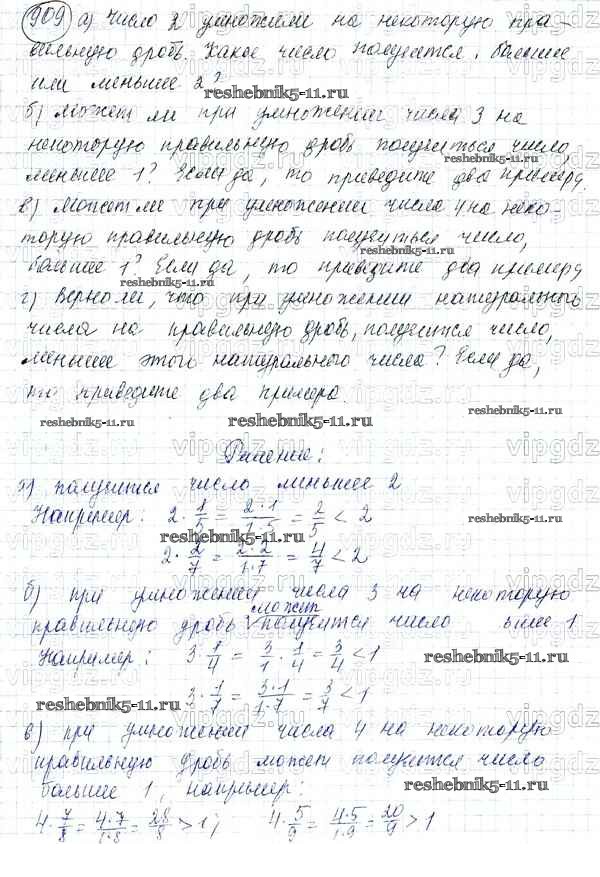 909 а) Число 2 умножили на некоторую пра-
вильную дробь. Какое число получится, большее
или меньшее 2?
reshebnik5-11.ru
б) может ли при умножении числа 3 на
некоторую правильную дробь получиться число,
reshebnik5-11.ru
меньшее 1? Если да, то приведите два примера.
в) может ли при умножении числа 4 на неко-
торую правильную дробь получиться число,
reshebnik5-11.ru
большее 1? Если да, то приведите два примера
reshebnik5-11.ru
г) Верно ли, что при умножении натурального
числа на правильную дробь, получится число,
меньшее этого натурального числа? Если да,
то приведите два примера.
reshebnik5-11.ru
reshebnik5-11.ru
reshebnik5-11.ru
Решение:
а) получится число меньшее 2
Например: 2·1/5 = 2·1/1·5 = 2/5 < 2
reshebnik5-11.ru
2·2/7 = 2·2/1·7 = 4/7 < 2
б) при умножении числа 3 на некоторую
может
правильную дробь получится число ьше 1
Например: 3·1/4 = 3/1·1/4 = 3/4 < 1
reshebnik5-11.ru
3·1/7 = 3·1/1·7 = 3/7 < 1
reshebnik5-11.ru
в) при умножении числа 4 на некоторую
правильную дробь может получится число
большее 1, например:
4·7/8 = 4·7/1·8 = 28/8 > 1; 4·5/9 = 4·5/1·9 = 20/9 > 1